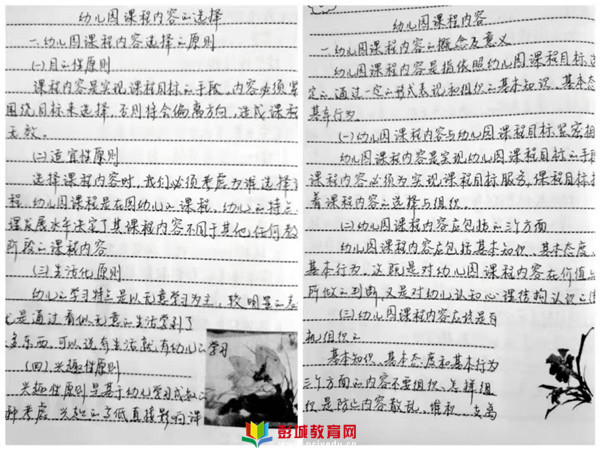 幼儿园课程内容的选择
一、幼儿园课程内容选择的原则
(一)目的性原则
课程内容是实现课程目标的手段,内容必须紧
围绕目标来选择,否则将会偏离方向,造成课程
无效。
(二)适宜性原则
选择课程内容时,我们必须考虑为谁选择
程,幼儿园课程是在园幼儿的课程,幼儿的特点
理发展水平决定了其课程内容不同于其他任何教
所的课程内容
(三)生活化原则
幼儿的学习特点是以无意学习为主,较明显的
是通过看似无意的生活学习了
多东西,可以说有生活就有幼儿的学习
(四)兴趣性原则
兴趣性原则是基于幼儿学习
种考虑,兴趣的高低直接影响课
幼儿园课程内容
一、幼儿园课程内容的概念及意义
幼儿园课程内容是指依照幼儿园课程目标选
定的通过一定的形式表现和组织的基本知识、基本态
基本行为
(一)幼儿园课程内容与幼儿园课程目标紧密相
幼儿园课程内容是实现幼儿园课程目标的手
课程内容必须为实现课程目标服务,课程目标
着课程内容的选择与组织
(二)幼儿园课程内容应包括的三个方面
幼儿园课程内容应包括基本知识、基本态度、
基本行为,这既是对幼儿园课程内容在价值上
所做的判断,又是对幼儿认知心理结构认识的
(三)幼儿园课程内容应该是有
机组织的
基本知识、基本态度和基本行为
三个方面的内容不要组织,怎样组
织是防止内容散乱、堆积、支离
彭城教育网